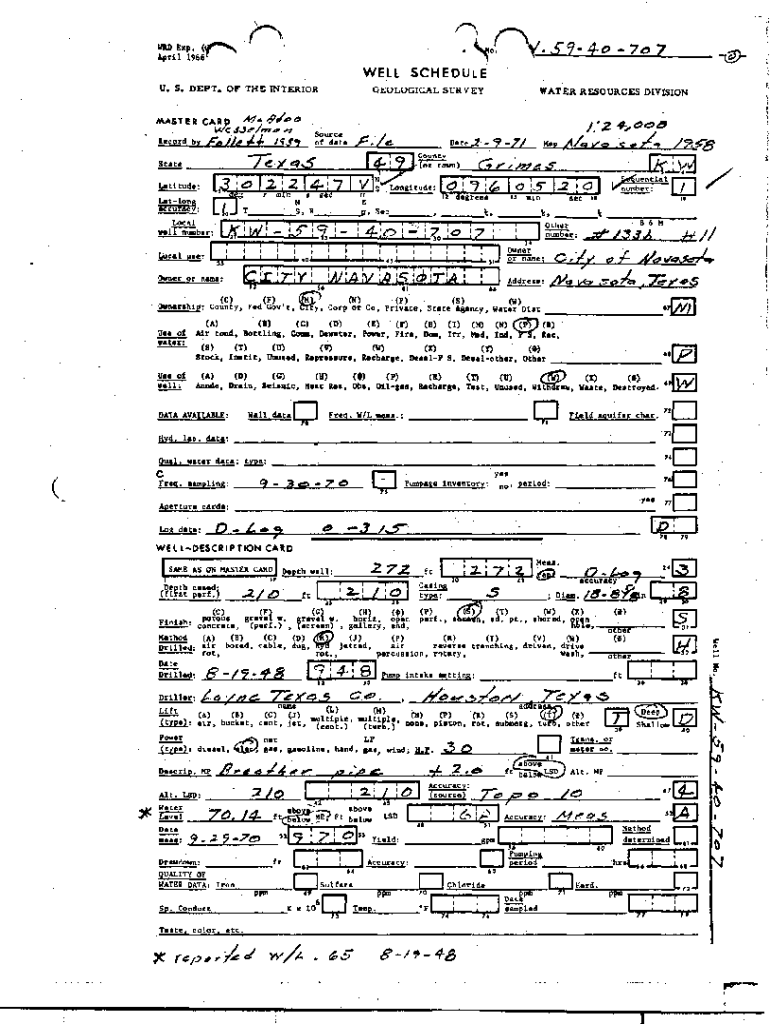 WRD Exp. No. 59-40-707
April 1966
WELL SCHEDULE
U. S. DEPT. OF THE INTERIOR GEOLOGICAL SURVEY WATER RESOURCES DIVISION
MASTER CARD McAdoo 1:24,000
Wesselman
Record by Follett 1939 Source of data File Date 2-9-71 Map Navasota 1958
State Texas 49 County (or town) Grimes KW
Latitude: 302247 N Longitude: 0960520 Sequential number: 1
deg min sec degrees min sec
Lat-long accuracy: 1 T S, R Sec
Local well number: KW-59-40-707 Other number: #1336 #11
Local use: Owner or name: City of Navasota
Owner or name: CITY NAVASOTA Address: Navasota, Texas
(C) (F) (M) (N) (P) (S) (W)
Ownership: County, Fed Gov't, City, Corp or Co, Private, State Agency, Water Dist M
(A) (B) (C) (D) (E) (F) (H) (I) (M) (N) (P) (R)
Use of water: Air cond, Bottling, Comm, Dewater, Power, Fire, Dom, Irr, Med, Ind, P S, Rec,
(S) (T) (U) (V) (W) (X) (Y) (Z)
Stock, Instit, Unused, Repressure, Recharge, Desal-P S, Desal-other, Other P
Use of well: (A) (D) (G) (H) (O) (P) (R) (T) (U) (W) (X) (Z)
Anode, Drain, Seismic, Heat Res, Obs, Oil-gas, Recharge, Test, Unused, Withdraw, Waste, Destroyed. W
DATA AVAILABLE: Well data Freq. W/L meas.: Field aquifer char.
Hyd. lab. data:
Qual. water data: type:
C
Freq. sampling: 9-30-70 Pumpage inventory: no, period: yes
Aperture cards: yes
Log data: D-Log 0-315 D
WELL-DESCRIPTION CARD
SAME AS ON MASTER CARD Depth well: 272 ft 272 Meas. D-Log accuracy 3
Depth cased: (first perf.) 210 ft 210 Casing type: S ; Diam. in 8
Finish: (C) porous concrete, (F) gravel w. (perf.), (G) gravel w. (screen), (H) horiz. gallery, (O) open end, (P) perf., (S) screen, (T) sd. pt., (W) shored, (X) open hole, (Z) other S
Method Drilled: (A) air rot, (B) bored, (C) cable, (D) dug, (H) hyd rot., (J) jetted, (P) air percussion, (R) reverse rotary, (T) trenching, (V) driven, (W) drive wash, (Z) other H
Date Drilled: 8-19-48 948 Pump intake setting: ft
Driller: Layne Texas Co., Houston Texas
name address
Lift (type): (A) air, (B) bucket, (C) cent, (J) jet, (L) multiple (cent.) (M) multiple (turb.) (N) none, (P) piston, (R) rot, (S) submerg, (T) turb, (Z) other T Deep Shallow D
Power (type): diesel, elec, gas, gasoline, hand, gas, wind; H.P. 30 Trans. or meter no.
nat LP
Descrip. MP Breather pipe +2.0 ft above below LSD Alt. MP
Alt. LSD: 210 210 Accuracy: (source) Topo 10 4
* Water Level 70.14 ft above below MP; Ft above below LSD 68 Accuracy: Meas A
Date meas: 9-29-70 970 Yield: gpm Method determined
Drawdown: ft Accuracy: Pumping period hrs
QUALITY OF WATER DATA: Iron Sulfate Chloride Hard.
ppm ppm ppm ppm
Sp. Conduct K x 10⁶ Temp. °F Date sampled
Taste, color, etc.
* reported W/L. 65 8-19-48
Well No. KW-59-40-707